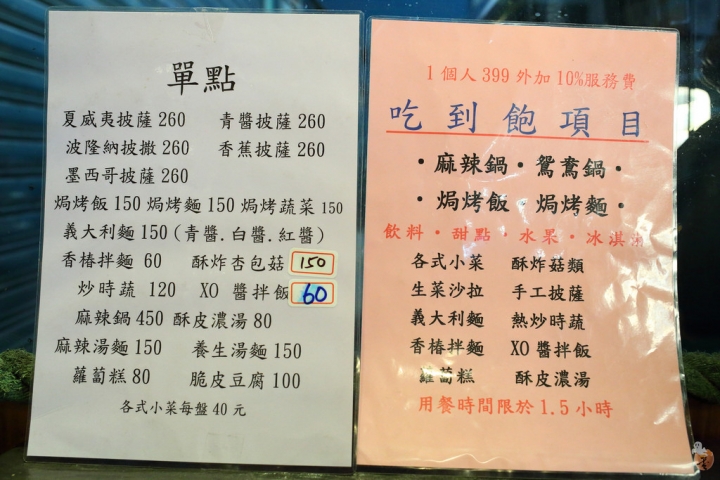 單點
夏威夷披薩 260 青醬披薩 260
波隆納披撒 260 香蕉披薩 260
墨西哥披薩 260
焗烤飯 150 焗烤麵 150 焗烤蔬菜 150
義大利麵 150 (青醬.白醬.紅醬)
香椿拌麵 60 酥炸杏包菇 150
炒時蔬 120 XO 醬拌飯 60
麻辣鍋 450 酥皮濃湯 80
麻辣湯麵 150 養生湯麵 150
蘿蔔糕 80 脆皮豆腐 100
各式小菜每盤 40 元
1 個人 399 外加 10%服務費
吃到飽項目
·麻辣鍋·鴛鴦鍋·
·焗烤飯·焗烤麵·
飲料·甜點·水果·冰淇淋
各式小菜 酥炸菇類
生菜沙拉 手工披薩
義大利麵 熱炒時蔬
香椿拌麵 XO 醬拌飯
蘿蔔糕 酥皮濃湯
用餐時間限於 1.5 小時